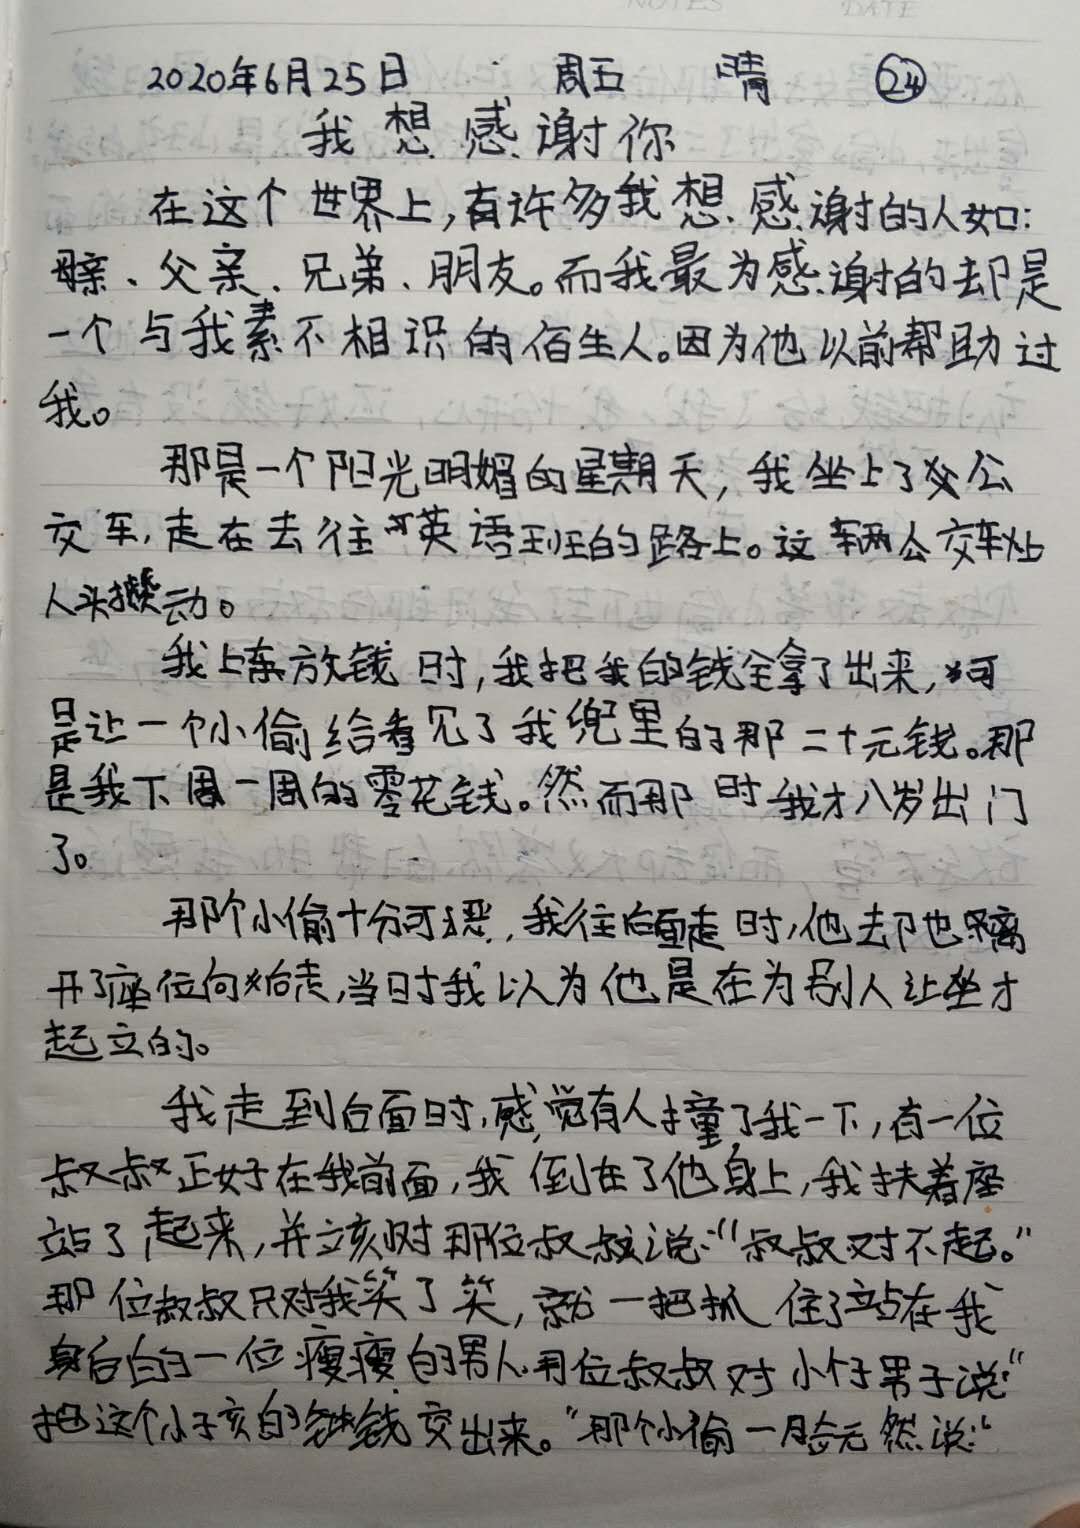 NOTES DATE
2020年6月25日 周五 晴 24
我想感谢你
在这个世界上,有许多我想感谢的人如:
母亲、父亲、兄弟、朋友。而我最为感谢的却是
一个与我素不相识的佰生人。因为他以前帮助过
我。
那是一个阳光明媚的星期天,我坐上了公
交车,走在去往英语班的路上。这辆公交车上
人头攒动。
我上车放钱时,我把我的钱全拿了出来,可
是让一个小偷给看见了我兜里的那二十元钱。那
是我下周一周的零花钱。然而那时我才八岁出门
了。
那个小偷十分可恶,我往后面走时,他却也离
开了座位向后走,当时我以为他是在为别人让坐才
起立的。
我走到后面时,感觉有人撞了我一下,有一位
叔叔正好在我前面,我倒在了他身上,我扶着座
站了起来,并立刻对那位叔叔说:“叔叔对不起。”
那位叔叔只对我笑了笑,就一把抓住了站在我
身后的一位瘦瘦的男人,那位叔叔对小个子男子说“
把这个小孩的钱交出来。”那个小偷一脸无然说:“